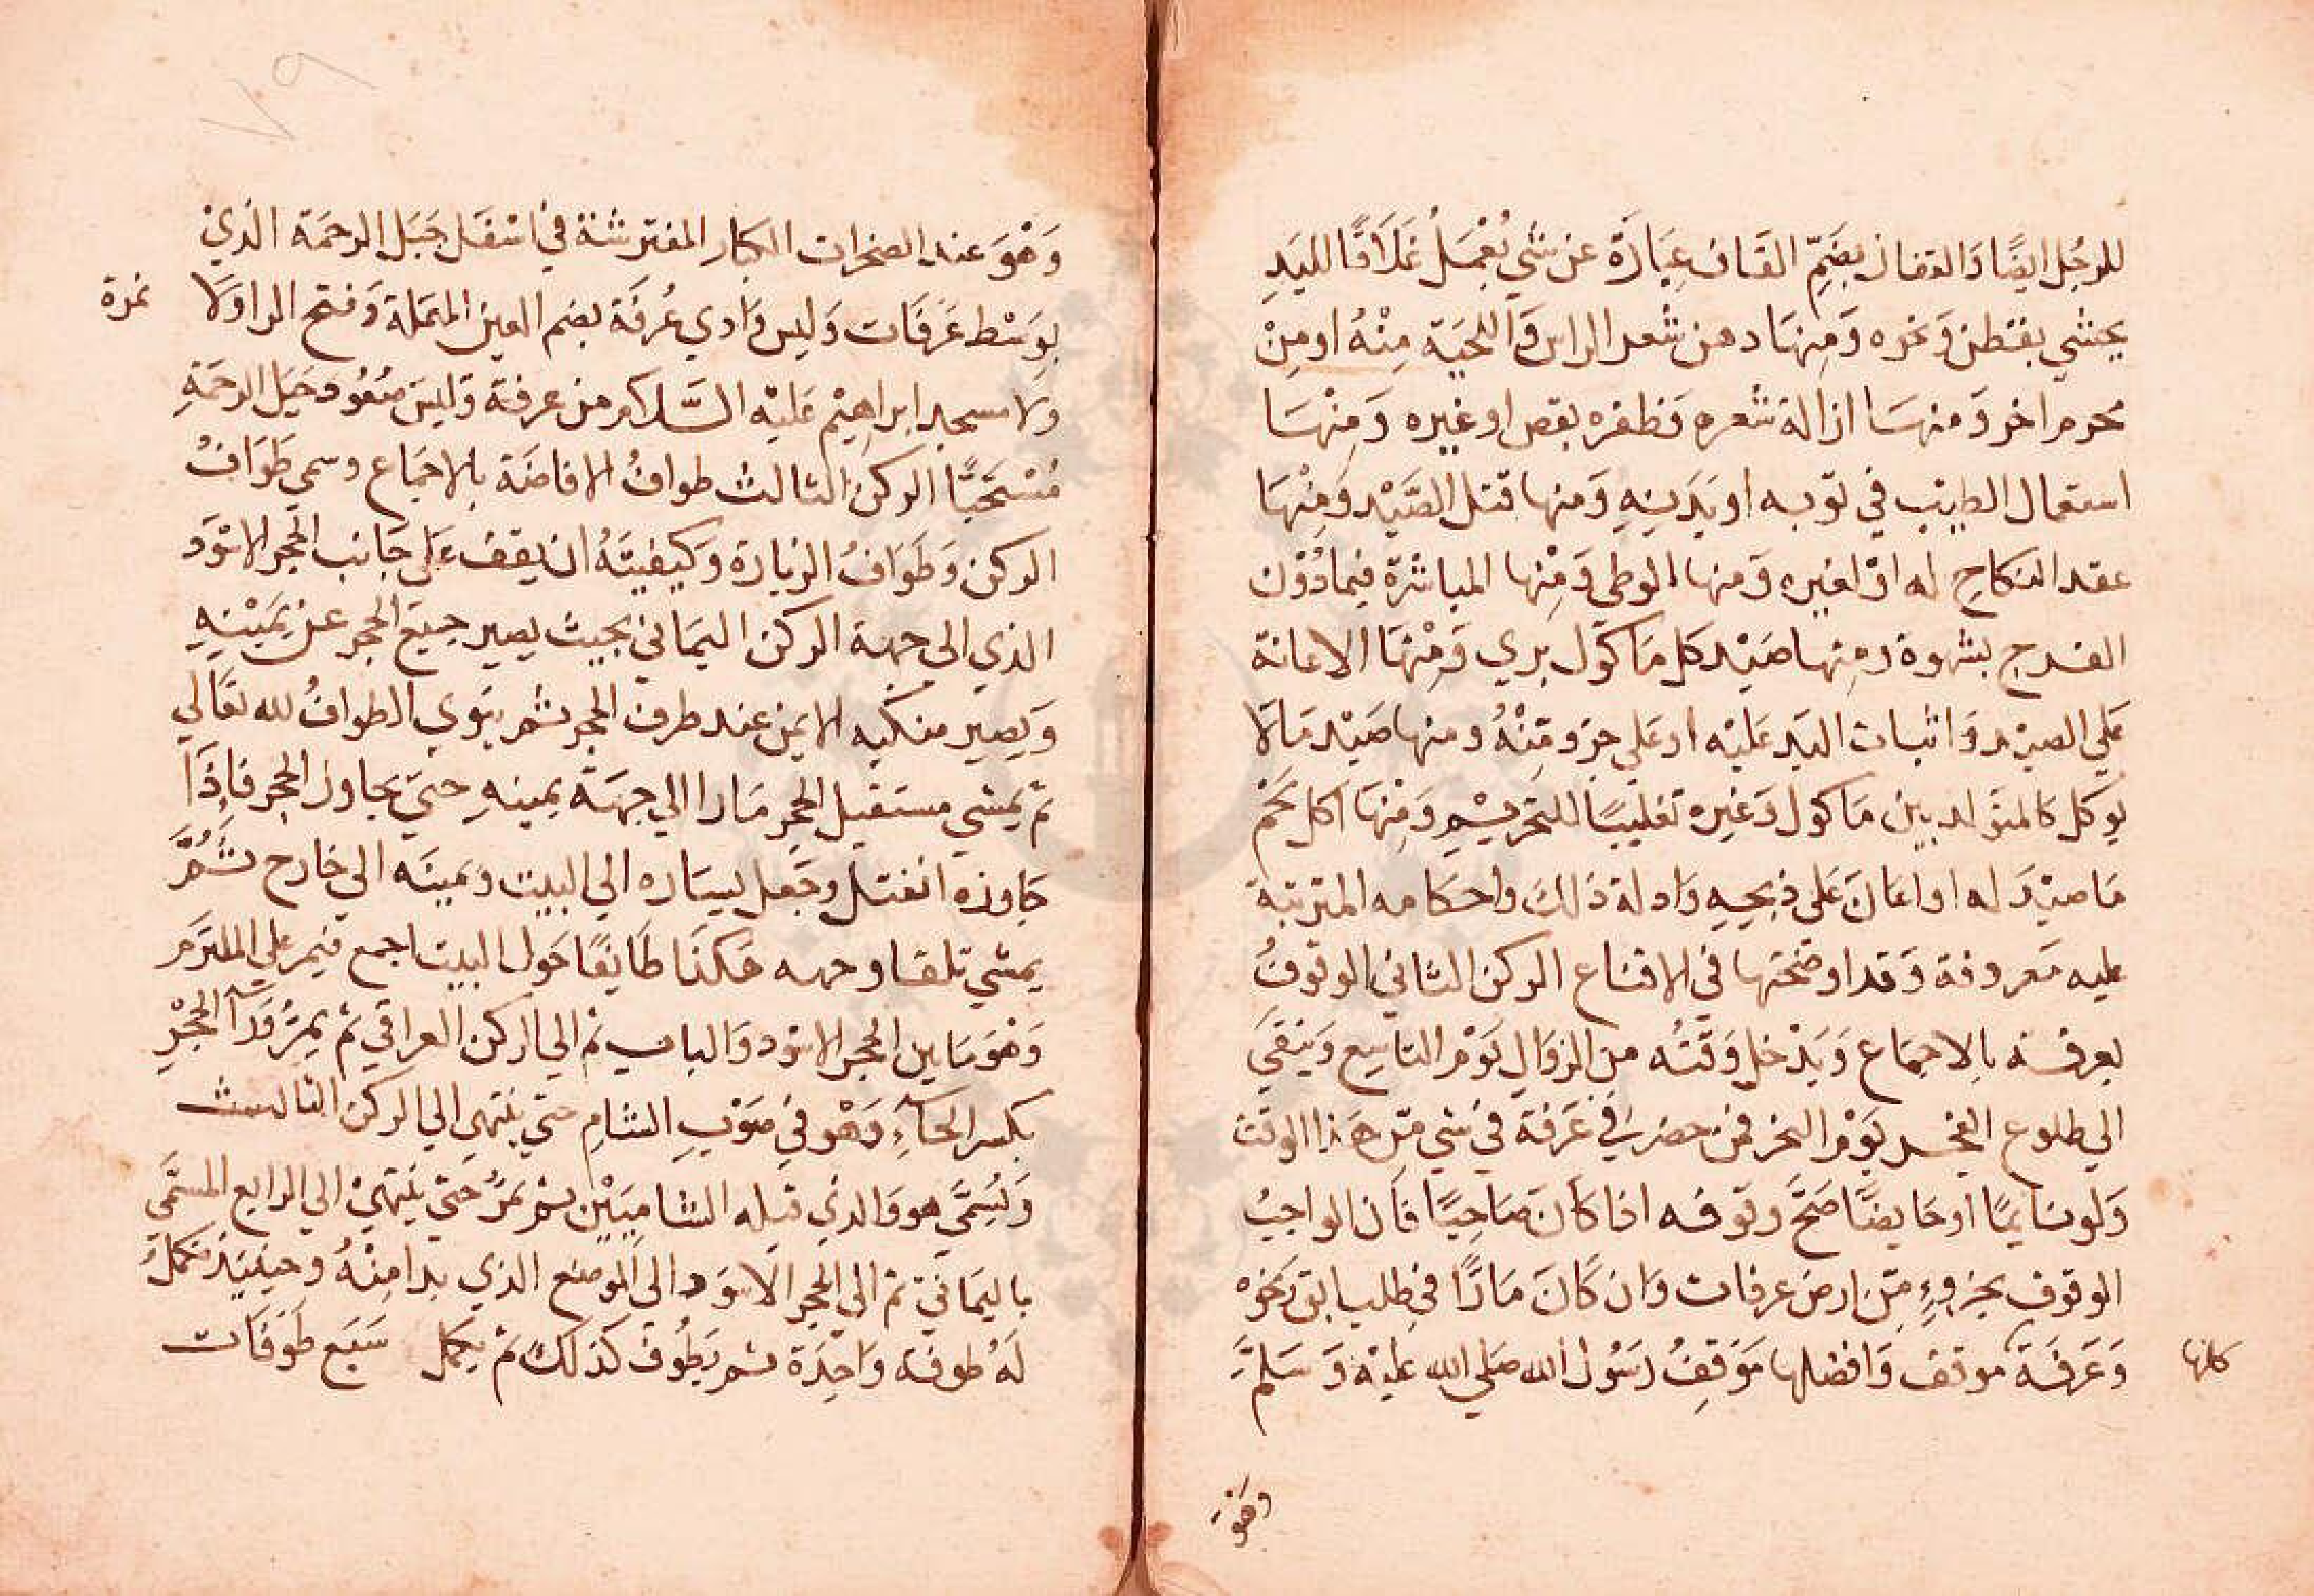 للرجُل ايضًا وَالقفاز بضَمِّ القَاف عِبَارَة عن شي يُعْمَلُ غَلَافًا لليَدِ
يحشي بقطن وَنحوه وَمِنهَا دهن شعر الراس وَاللحيَة مِنْهُ او مِنْ
محرم اخر وَمنهسَا ازالة شعره وَظفره بقص او غيره وَمِنْهسَا
استعمال الطيب في ثوبه او بَدَنِهِ وَمنها قتل الصَّيْد وَمِنْهَا
عقد النكاحِ له اوْ لغيره وَمنها الوطي وَمِنْها المباشرَة فيمادُوْن
الفرج بشهوة ومِنها صَيْد كل مَاكوْل بري وَمِنْهَا الاعانة
عَلي الصيْد وَاثبات اليَد عَليْه اوعَلي جزو مِنْهُ ومنها صَيْد مَالَا
يوكل كالمتوَلد بين مَاكول وَغيره تغليبًا للتحريْم وَمِنْهَا اكل لَحْم
مَاصيْدَ له او اعَانَ عَلى ذبحِهِ وَادلة ذَلكَ واحكامه المترتبَة
عليه مَعروفة وَقد اوضحتها في الاقناع الركن الثاني الوقوفُ
بعرفة بالاجمَاع وَيَدْخل وَقتُه من الزوَال يَوْم التاسِع وَيَبْقَي
الي طلوع الفجر يَوْم النحر فمن حضر في عَرَفَة في شي مِّن هَذا الوقت
وَلو نايمًا اوحَايضًا صَحَّ وقوفه اذا كَانَ صَاحِيًا فَان الواجبُ
الوقوف بجزوءٍ مِّن ارض عرفات وَان كَانَ مَارًّا في طلب ابق وَنحوْه
وَعَرَفَة موقف وَافضلها مَوْقِفُ رَسُول الله صَلي الله عليْه وَسَلَّمَ
كلها
وَهوَ
وَهْوَ عند الصخرات الكبار المفترشة في اسْفَل جَبَل الرحمَة الَّذيْ
بوَسْط عَرَفَات وَليس وَادي عُرفَة بضم العين المهملة وَفتح الرا وَلَا
نمرة
وَلا مسجد ابراهِيْم عَليْه السَّلام من عرفة وَليسَ صُعُود جَبَل الرحمَةِ
مُسْتَحَبًّا الركن الثالث طوافُ الافاضَة بالاجمَاع وسمي طَوَافُ
الركن وَطَوَافُ الزيارة وَكيفيتَهُ ان يقف عَلي جَانب الحجر الاسْوَد
الذي الي جهة الركن اليمَاني بحيث يصير جميع الحجر عن يَمِيْنِهِ
وَيصِير منكبه الايمن عند طرف الحجر ثم ينوي الطوافُ لله تعَالي
ثم يَمشي مستقبل الحجرِ مَارا الي جهَة يمينهِ حتي يجاوز الحجر فاذَا
جَاوزه انفتل وجَعل يسَاره الي البيت ويمينَه الي خارج ثُمَّ
يمشي تلقا وجهه هَكذَا طَايفًا حَول البيت اجمع فيمر علي الملتزَم
وَهْوَ مَا بين الحجر الاسْود وَالباب ثم الي الركن العراقي ثم يمرُّ وَرَآ الحِجْرِ
بكسر الحآءِ وَهْو في صَوْبِ الشامِ حتي ينتهي الي الركن الثالث
وَيُسَمَّي هو وَالذي قبله الشاميَيْن ثم يمَرُّ حَتي يَنتهيْ الي الرابع المسَمَّي
باليمَانيّ ثم الي الحجر الاسْوَد الي الموضع الذي بدا مِنْهُ وحينَيذ تكملُ
لهُ طوفَة وَاحِدَة ثم يَطُوف كَذلكُ ثم يكمل سَبَع طَوفَات